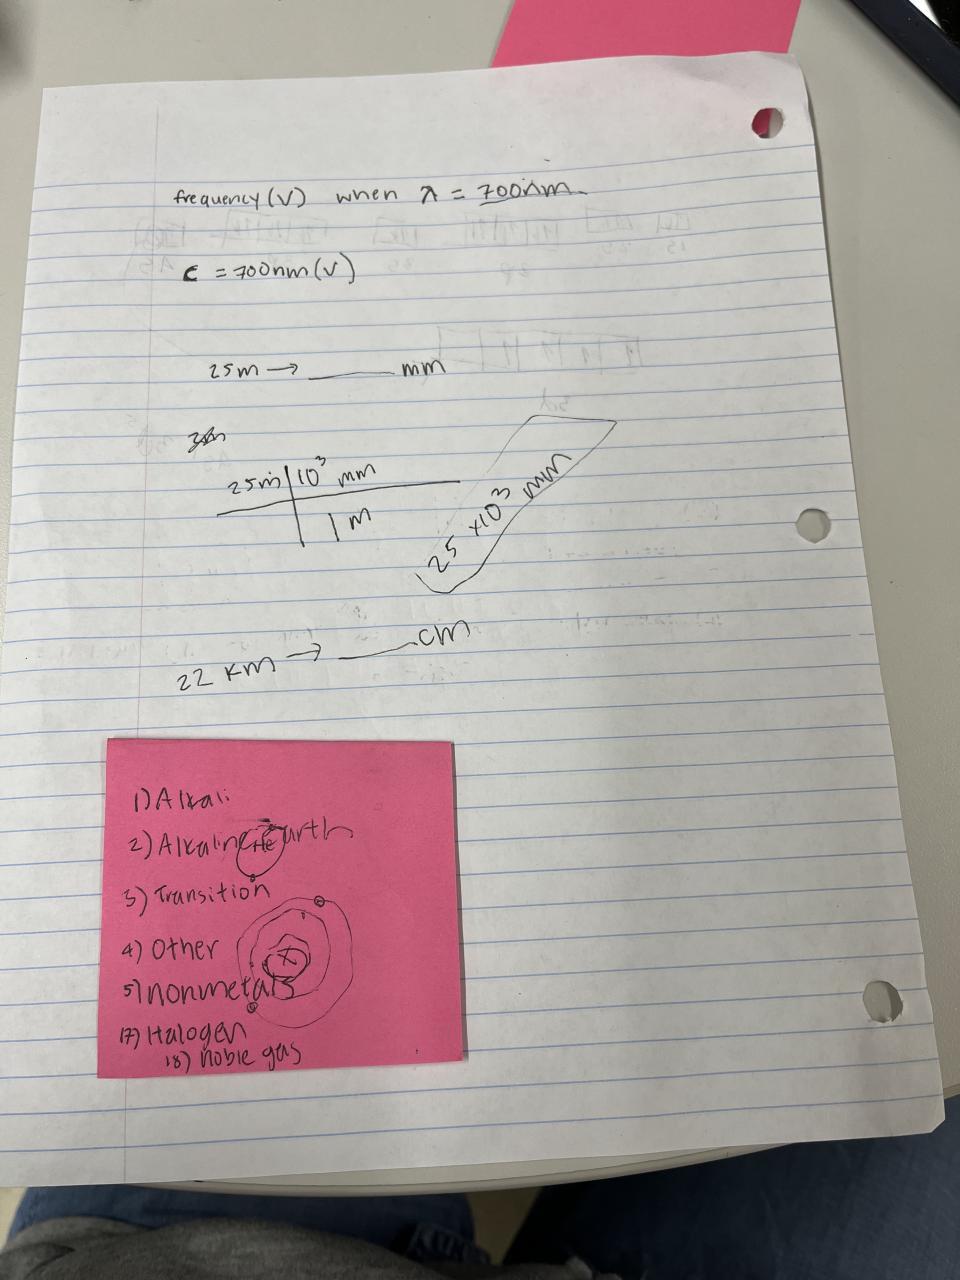 frequency (V) when λ = 700nm
c = 700nm (V)
25m → ______ mm
25m | 10³ mm
1 m
25 ×10³ mm
22 Km → ______ cm
1) Alkali
2) Alkaline Earth
He
3) Transition
4) Other
X
5) nonmetals
17) Halogen
18) noble gas